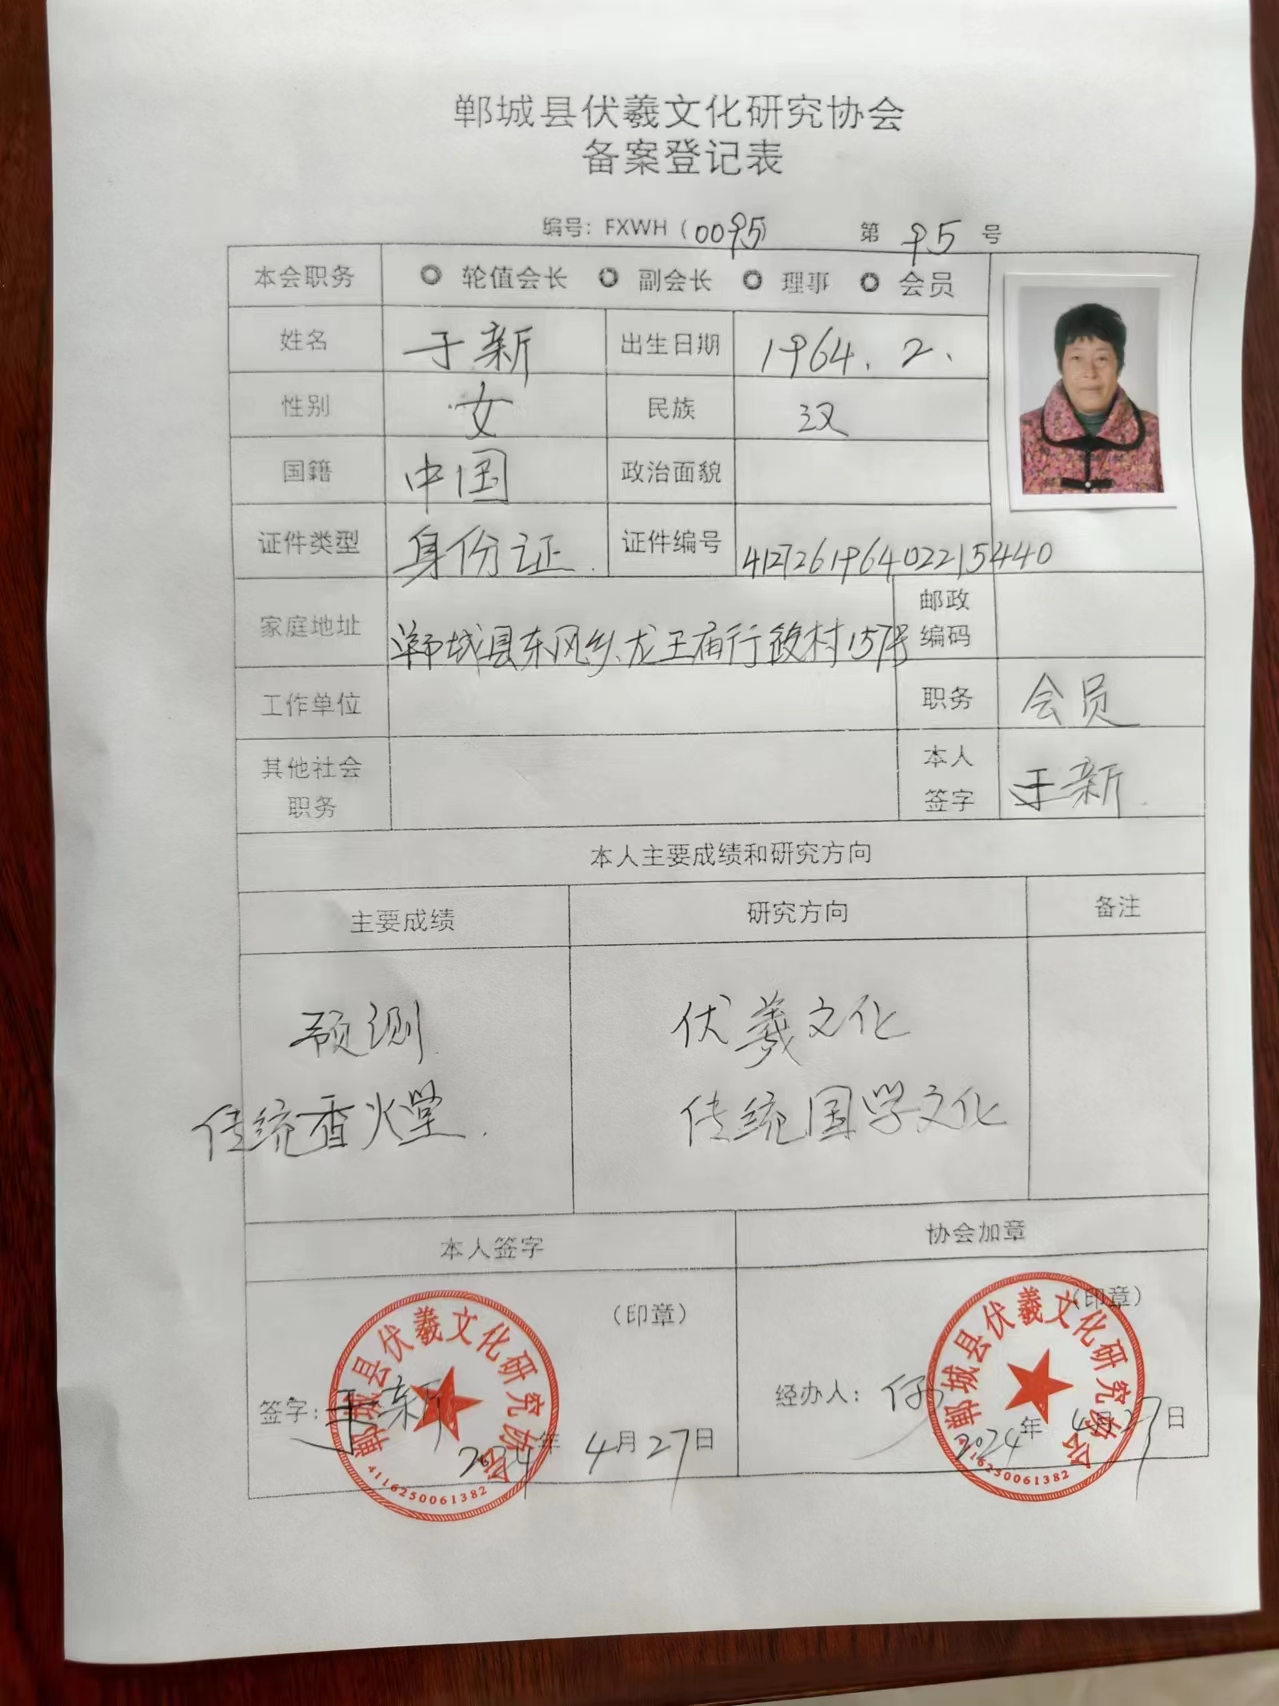 郸城县伏羲文化研究协会
备案登记表
编号：FXWH（0095） 第 95 号
本会职务 轮值会长 副会长 理事 会员
姓名 于新 出生日期 1964.2.
性别 女 民族 汉
国籍 中国 政治面貌
证件类型 身份证 证件编号 412726196402215440
家庭地址 郸城县东风乡龙王庙行政村157号 邮政编码
工作单位 职务 会员
其他社会职务 本人签字 于新
本人主要成绩和研究方向
主要成绩 研究方向 备注
预测 伏羲文化
传统香火堂. 传统国学文化
本人签字 协会加章
（印章） （印章）
签字：于新 经办人：
2024年 4月27日 2024年 4月27日
郸城县伏羲文化研究协会
4116250061382
郸城县伏羲文化研究协会
4116250061382